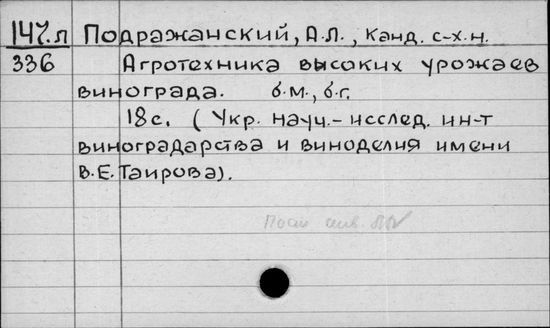 147.л Подражанский, А.Л., канд. с-х.н.
336 Агротехника высоких урожаев
винограда. б.м., б.г.
18с. (Укр. науч.-исслед. ин-т
виноградарства и виноделия имени
В.Е.Таирова).